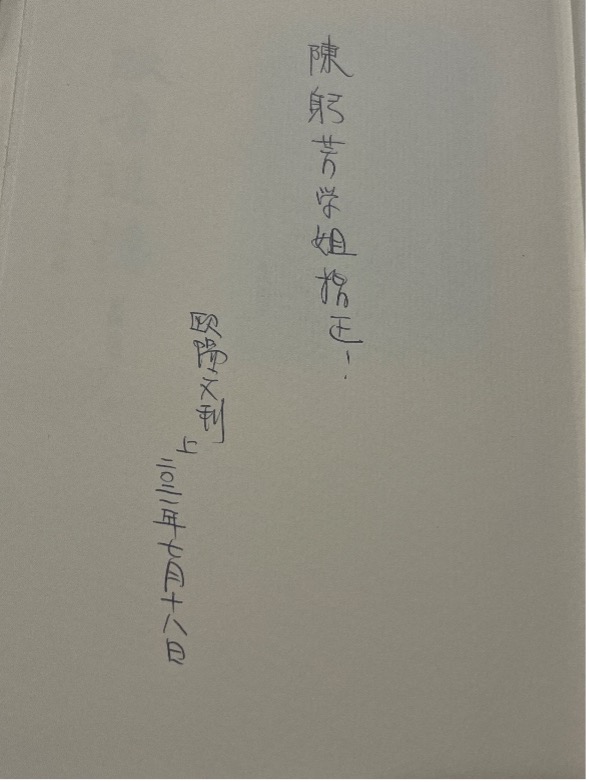 陳躬芳学姐指正！
欧陽文利
上
二〇二二年七月十八日